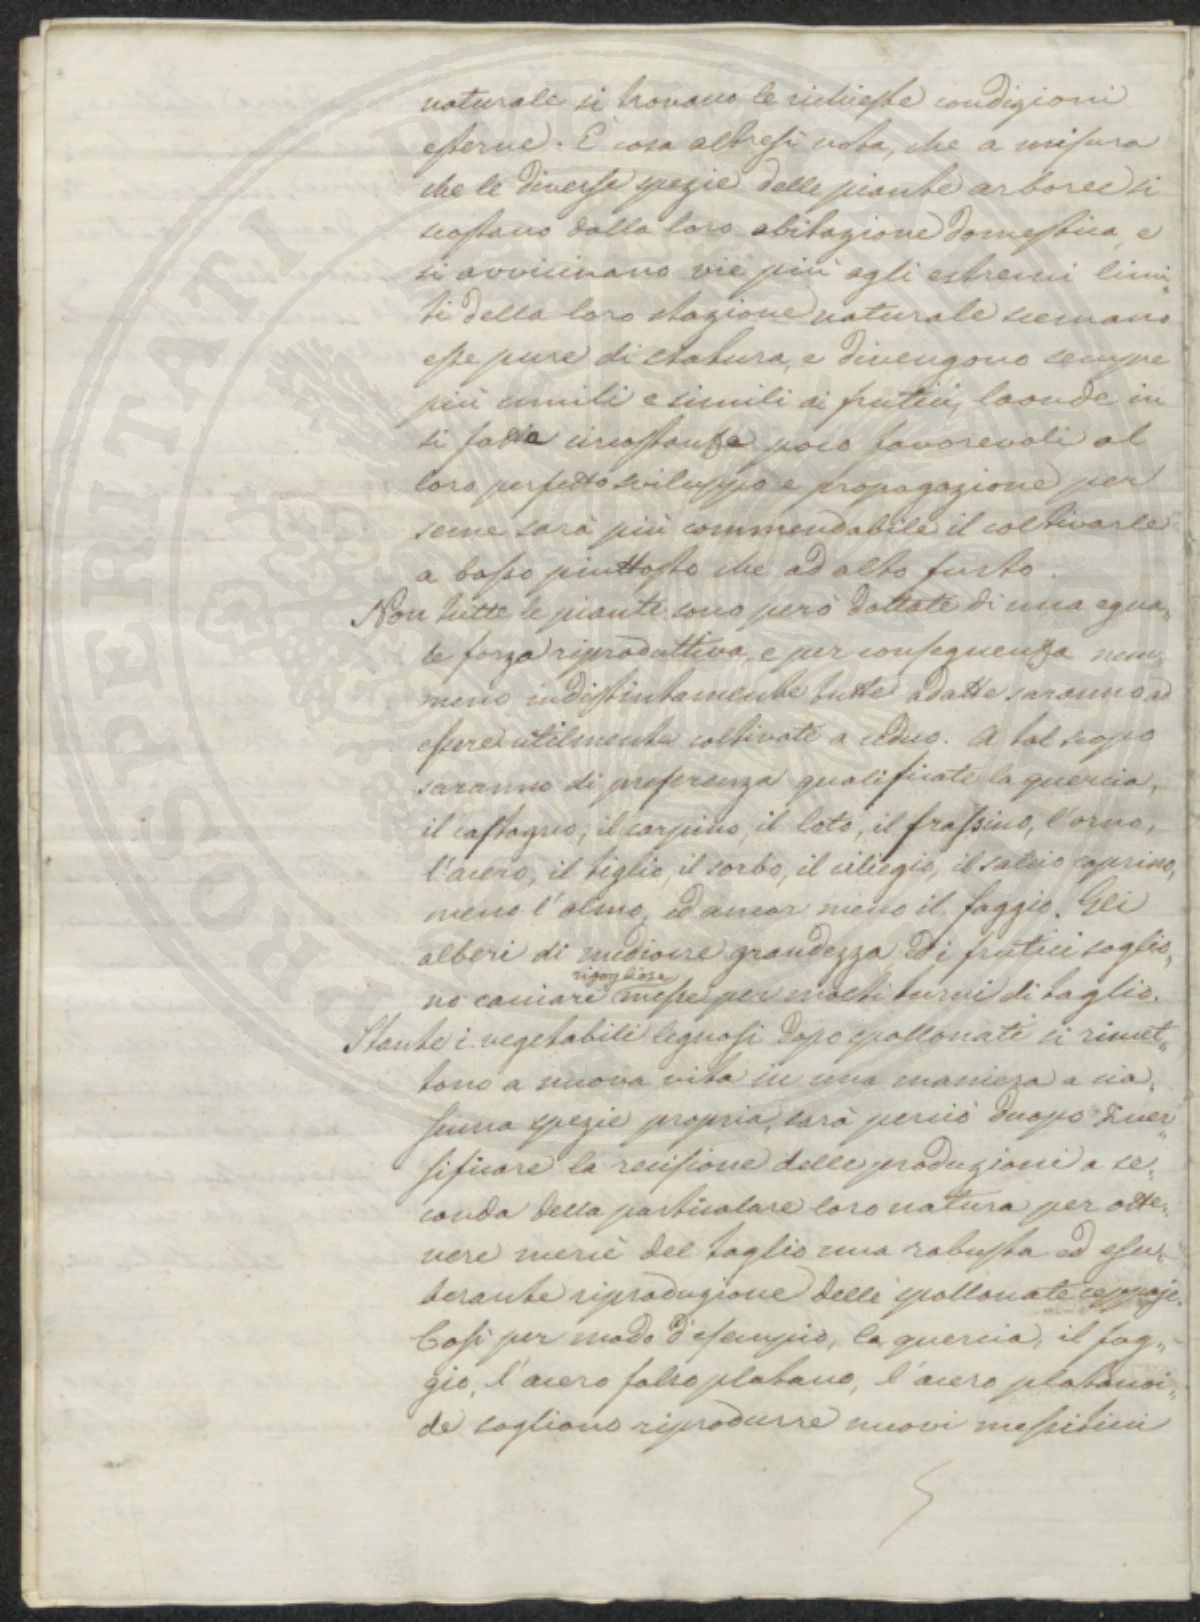 naturale si trovano le richieste condizioni
esterne. È cosa altresì nota, che a misura
che le diverse spezie delle piante arboree si
scostano dalla loro abitazione domestica, e
si avvicinano vie più agli estremi limi„
ti della loro stazione naturale scemano
esse pure di statura, e divengono sempre
più umili e simili ai frutici, laonde in
si fatte circostanze poco favorevoli al
loro perfetto sviluppo e propagazione per
seme sarà più commendabile il coltivarle
a basso piuttosto che ad alto fusto.
Non tutte le piante sono però dottate di una egua„
le forza riproduttiva, e per conseguenza nem„
meno indistintamente tutte adatte saranno ad
essere utilmente coltivate a ceduo. A tal scopo
saranno di preferenza qualificate la quercia,
il castagno, il carpino, il loto, il frassino, l'orno,
l'acero, il tiglio, il sorbo, il ciliegio, il salcio caprino,
meno l'olmo, ed ancor meno il faggio. Gli
alberi di mediocre grandezza ed i frutici soglio„
rigogliose
no cacciare messe per molti turni di taglio.
Stante i vegetabili legnosi dopo spollonati si rimet„
tono a nuova vita in una maniera a cia„
scuna spezie propria, sarà perciò duopo diver„
sificare la recisione delle produzioni a se„
conda della particolare loro natura per otte„
nere mercè del taglio una robusta ed esu„
berante riproduzione delle spollonate ceppaje.
Così per modo d'esempio, la quercia, il fag„
gio, l'acero falso platano, l'acero platanoi„
de sogliono riprodurre nuovi messiticci
PROSPERITATI PUBLICAE